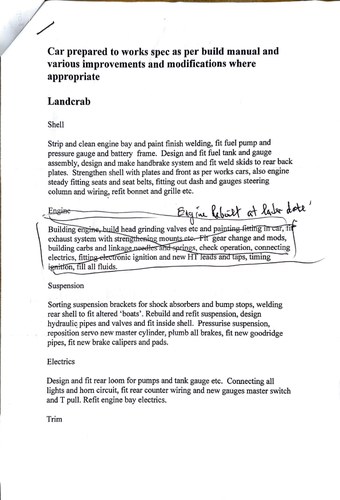 Car prepared to works spec as per build manual and
various improvements and modifications where
appropriate
Landcrab
Shell
Strip and clean engine bay and paint finish welding, fit fuel pump and
pressure gauge and battery frame. Design and fit fuel tank and gauge
assembly, design and make handbrake system and fit weld skids to rear back
plates. Strengthen shell with plates and front as per works cars, also engine
steady fitting seats and seat belts, fitting out dash and gauges steering
column and wiring, refit bonnet and grille etc.
Engine
Engine Rebuilt at later date'
Building engine, build head grinding valves etc and painting fitting in car, fit
exhaust system with strengthening mounts etc. Fit gear change and mods,
building carbs and linkage needles and springs, check operation, connecting
electrics, fitting electronic ignition and new HT leads and taps, timing
ignition, fill all fluids.
Suspension
Sorting suspension brackets for shock absorbers and bump stops, welding
rear shell to fit altered 'boats'. Rebuild and refit suspension, design
hydraulic pipes and valves and fit inside shell. Pressurise suspension,
reposition servo new master cylinder, plumb all brakes, fit new goodridge
pipes, fit new brake calipers and pads.
Electrics
Design and fit rear loom for pumps and tank gauge etc. Connecting all
lights and horn circuit, fit rear counter wiring and new gauges master switch
and T pull. Refit engine bay electrics.
Trim